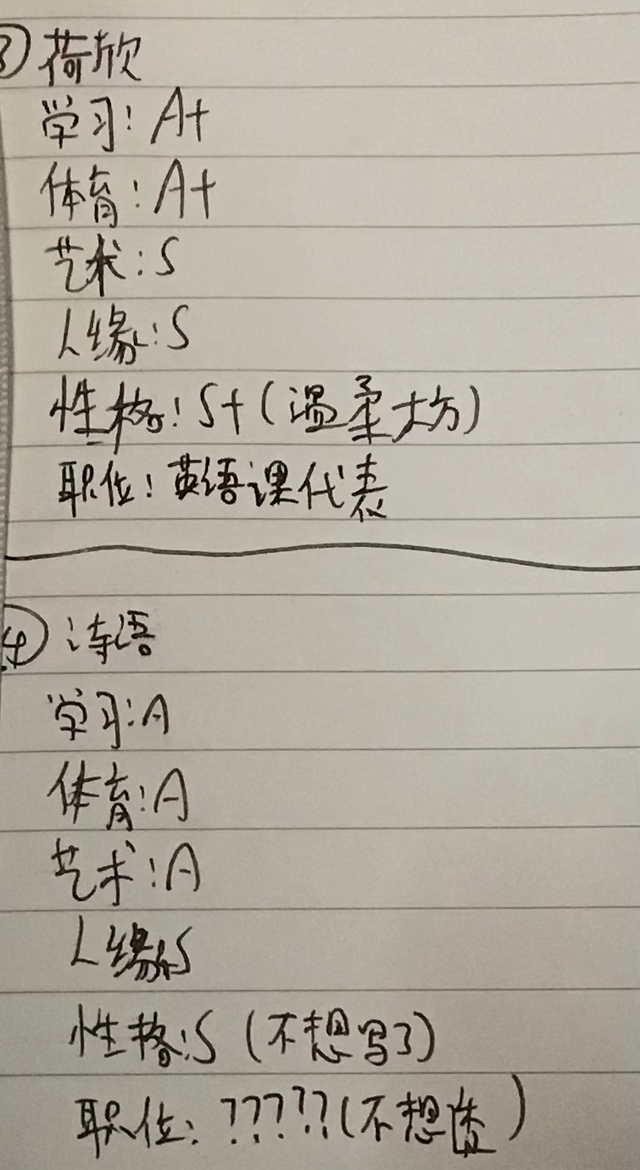 ③荷欣
学习：A+
体育：A+
艺术：S
人缘：S
性格：S+（温柔大方）
职位：英语课代表
④诗语
学习：A
体育：A
艺术：A
人缘：S
性格：S（不想写了）
职位：?????（不想）